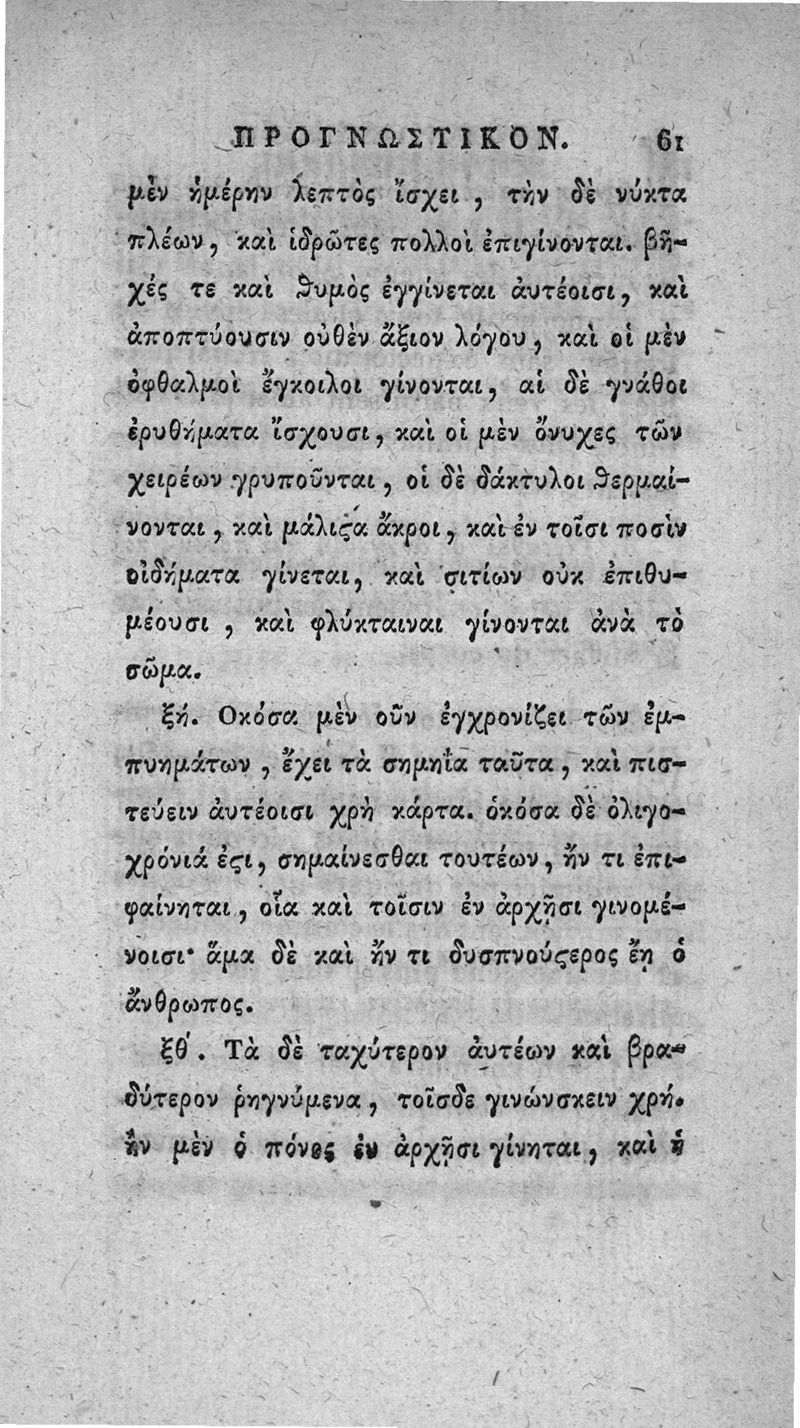 ΠΡΟΓΝΩΣΤΙΚΟΝ. 61
μὲν ἡμέρην λεπτὸς ἴσχει, τὴν δὲ νύκτα
πλέων, καὶ ἱδρῶτες πολλοὶ ἐπιγίνονται. βῆ-
χές τε καὶ θυμὸς ἐγγίνεται ἀυτέοισι, καὶ
ἀποπτύουσιν οὐθὲν ἄξιον λόγου, καὶ οἱ μὲν
ὀφθαλμοὶ ἔγκοιλοι γίνονται, αἱ δὲ γνάθοι
ἐρυθήματα ἴσχουσι, καὶ οἱ μὲν ὄνυχες τῶν
χειρέων γρυποῦνται, οἱ δὲ δάκτυλοι θερμαί-
νονται, καὶ μάλιϛα ἄκροι, καὶ ἐν τοῖσι ποσὶν
οἰδήματα γίνεται, καὶ σιτίων οὐκ ἐπιθυ-
μέουσι, καὶ φλύκταιναι γίνονται ἀνὰ τὸ
σῶμα.
ξή. Οκόσα μὲν οῦν ἐγχρονίζει τῶν ἐμ-
πυημάτων, ἔχει τὰ σημηΐα ταῦτα, καὶ πισ-
τεύειν ἀυτέοισι χρὴ κάρτα. ὁκόσα δὲ ὀλιγο-
χρόνιά ἐϛι, σημαίνεσθαι τουτέων, ἤν τι ἐπι-
φαίνηται, οἷα καὶ τοῖσιν ἐν ἀρχῇσι γινομέ-
νοισι· ἅμα δὲ καὶ ἤν τι δυσπνούϛερος ἔῃ ὁ
ἄνθρωπος.
ξθ΄. Τὰ δὲ ταχύτερον ἀυτέων καὶ βρα-
δύτερον ῥηγνύμενα, τοῖσδε γινώνσκειν χρή.
ἢν μὲν ὁ πόνος ἐν ἀρχῇσι γίνηται, καὶ ἡ